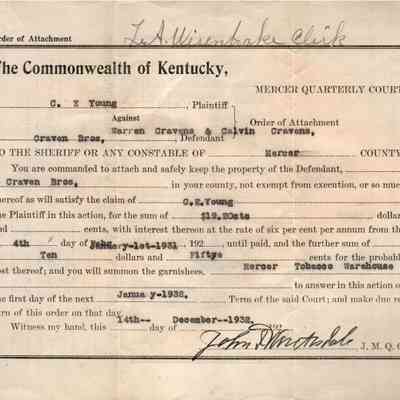 rder of Attachment
Clerk
The Commonwealth of Kentucky,
MERCER QUARTERLY COURT
C. E Young , Plaintiff
Against
Order of Attachment
Warren Cravens & Calvin Cravens,
Craven Bros, , Defendant
TO THE SHERIFF OR ANY CONSTABLE OF Mercer COUNTY
You are commanded to attach and safely keep the property of the Defendant,
Craven Bros, in your county, not exempt from execution, or so muc
hereof as will satisfy the claim of C.E.Young
he Plaintiff in this action, for the sum of $19.20cts dollar
nd cents, with interest thereon at the rate of six per cent per annum from th
4th day of January-1st-1931 , 192 , until paid, and the further sum of
Ten dollars and Fiftye cents for the probabl
ost thereof; and you will summon the garnishees. Mercer Tobacco Warehouse
to answer in this action o
he first day of the next January-1932, Term of the said Court; and make due re
rn of this order on that day.
Witness my hand, this 14th-- day of December--1932, 192
J. M. Q. C